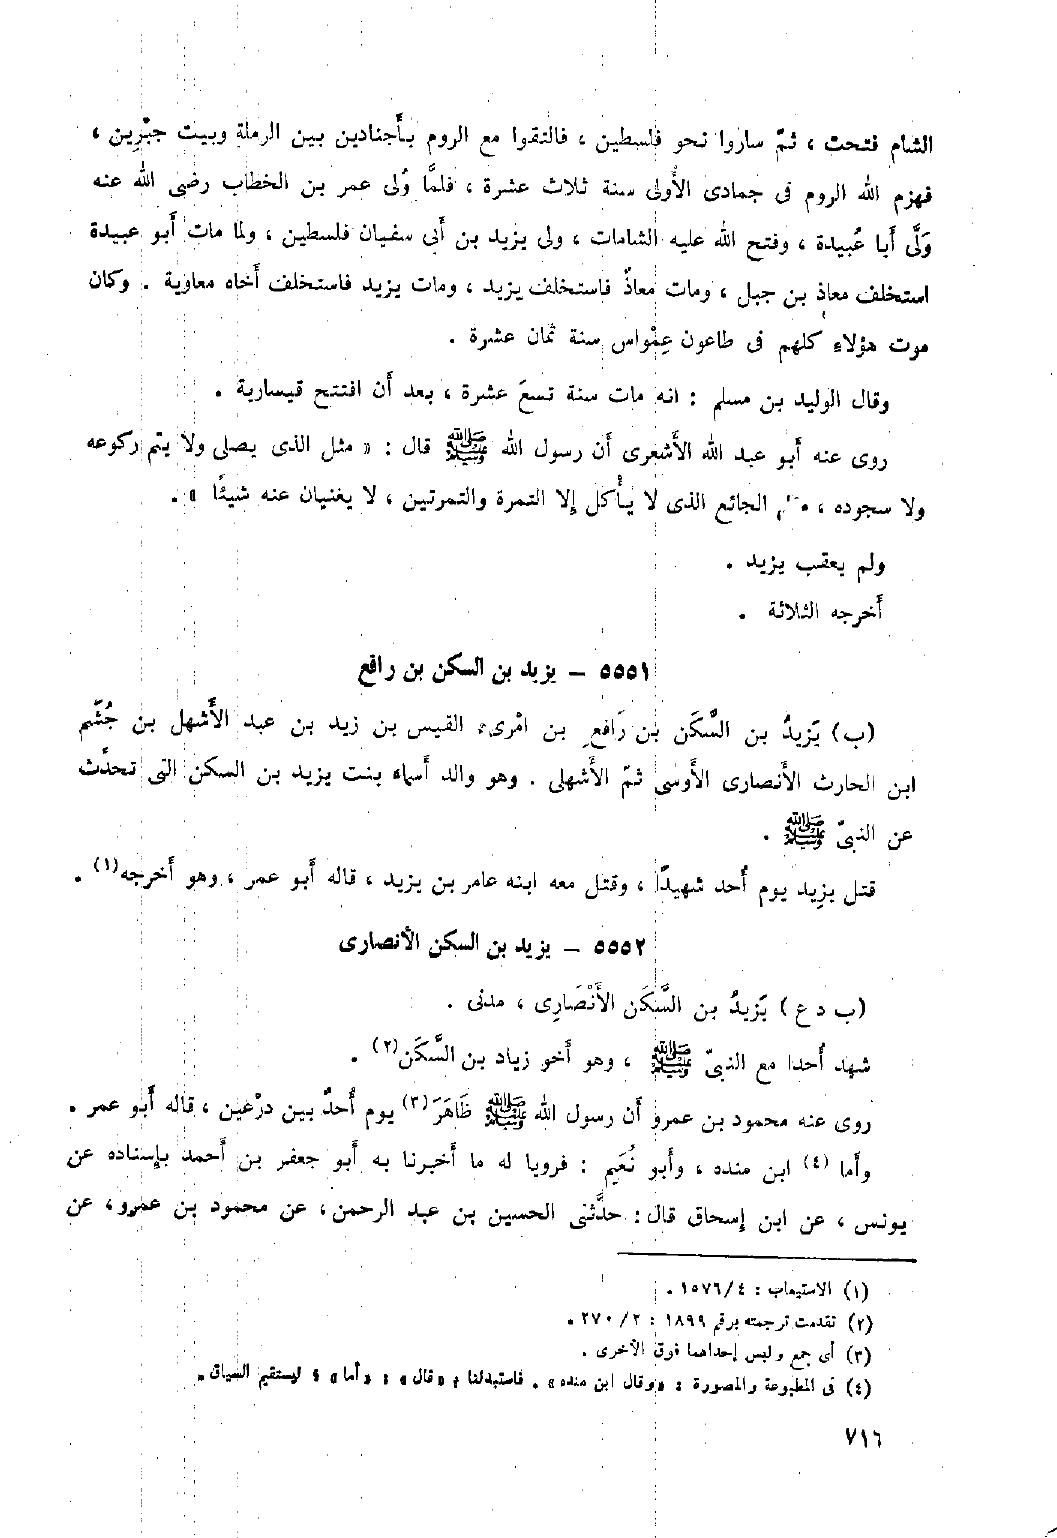 الشام فتحت ، ثمّ ساروا نحو فلسطين ، فالتقوا مع الروم بأَجنادين بين الرملة وبيت جبْرِين ،
فهزم الله الروم فى جمادى الأُولى سنة ثلاث عشرة ، فلمَّا وُلى عمر بن الخطاب رضى الله عنه
وَلَّى أَبا عُبيدة ، وفتح الله عليه الشامات ، ولى يزيد بن أَبى سفيان فلسطين ، ولما مات أَبو عبيدة
استخلف معاذ بن جبل ، ومات معاذٌ فاستخلف يزيد ، ومات يزيد فاستخلف أَخاه معاوية . وكان
موت هؤلاءِ كلهم فى طاعون عِمْواس سنة ثمان عشرة .
وقال الوليد بن مسلم : انه مات سنة تسعَ عشرة ، بعد أَن افتتح قيسارية .
روى عنه أَبو عبد الله الأَشعرى أَن رسول الله ﷺ قال : « مثل الذى يصلى ولا يتم ركوعه
ولا سجوده ، الجائع الذى لا يأْكل إِلا التمرة والتمرتين ، لا يغنيان عنه شيئًا » .
ولم يعقب يزيد .
أَخرجه الثلاثة .
٥٥٥١ – يزيد بن السكن بن رافع
(ب) يَزِيدُ بن السَّكَن بن رَافعِ بن امْرىء القيس بن زيد بن عبد الأَشهل بن جُشَم
ابن الحارث الأَنصارى الأَوسى ثمّ الأَشهلى . وهو والد أَسماء بنت يزيد بن السكن التى تحدَّث
عن النبىّ ﷺ .
قتل يزيد يوم أُحد شهيدًا ، وقتل معه ابنه عامر بن يزيد ، قاله أَبو عمر ، وهو أَخرجه(١) .
٥٥٥٢ – يزيد بن السكن الأنصارى
(ب د ع) يَزِيدُ بن السَّكَن الأَنْصَارِى ، مدنى .
شهد أُحدا مع النبىّ ﷺ ، وهو أَخو زياد بن السَّكَن(٢) .
روى عنه محمود بن عمرو أَن رسول الله ﷺ ظَاهَرَ(٣) يوم أُحدٌ بين درْعين ، قاله أَبو عمر .
وأَما (٤) ابن منده ، وأَبو نُعَيم : فرويا له ما أَخبرنا به أَبو جعفر بن أَحمد بإِسناده عن
يونس ، عن ابن إِسحاق قال : حدَّثنى الحسين بن عبد الرحمن ، عن محمود بن عمرو ، عن
(١) الاستيعاب : ٤/ ١٥٧٦ .
(٢) تقدمت ترجمته برقم ١٨٩٩ : ٢/ ٢٧٠ .
(٣) أى جمع وليس إحداهما فوق الأخرى .
(٤) فى المطبوعة والمصورة : « وقال ابن منده » . فاستبدلنا « قال » : « أما » ، ليستقيم السياق .
٧١٦